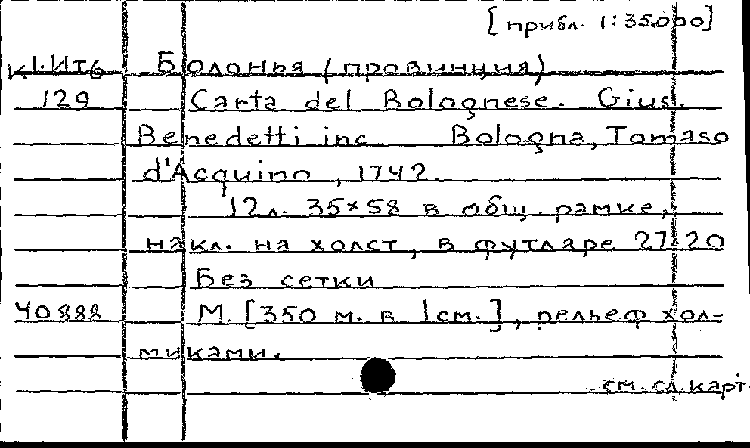 [прибл. 1:35.000]
К1.Ит6 Болонья (провинция)
129 Carta del Bolognese. Gius.
Benedetti inc Bologna, Tomaso
d'Acquino, 1742.
12л. 35×58 в общ. рамке,
накл. на холст, в футляре 27×20
Без сетки
40888 М. [350 м. в 1см.], рельеф хол-
миками.
см. сл. карт.